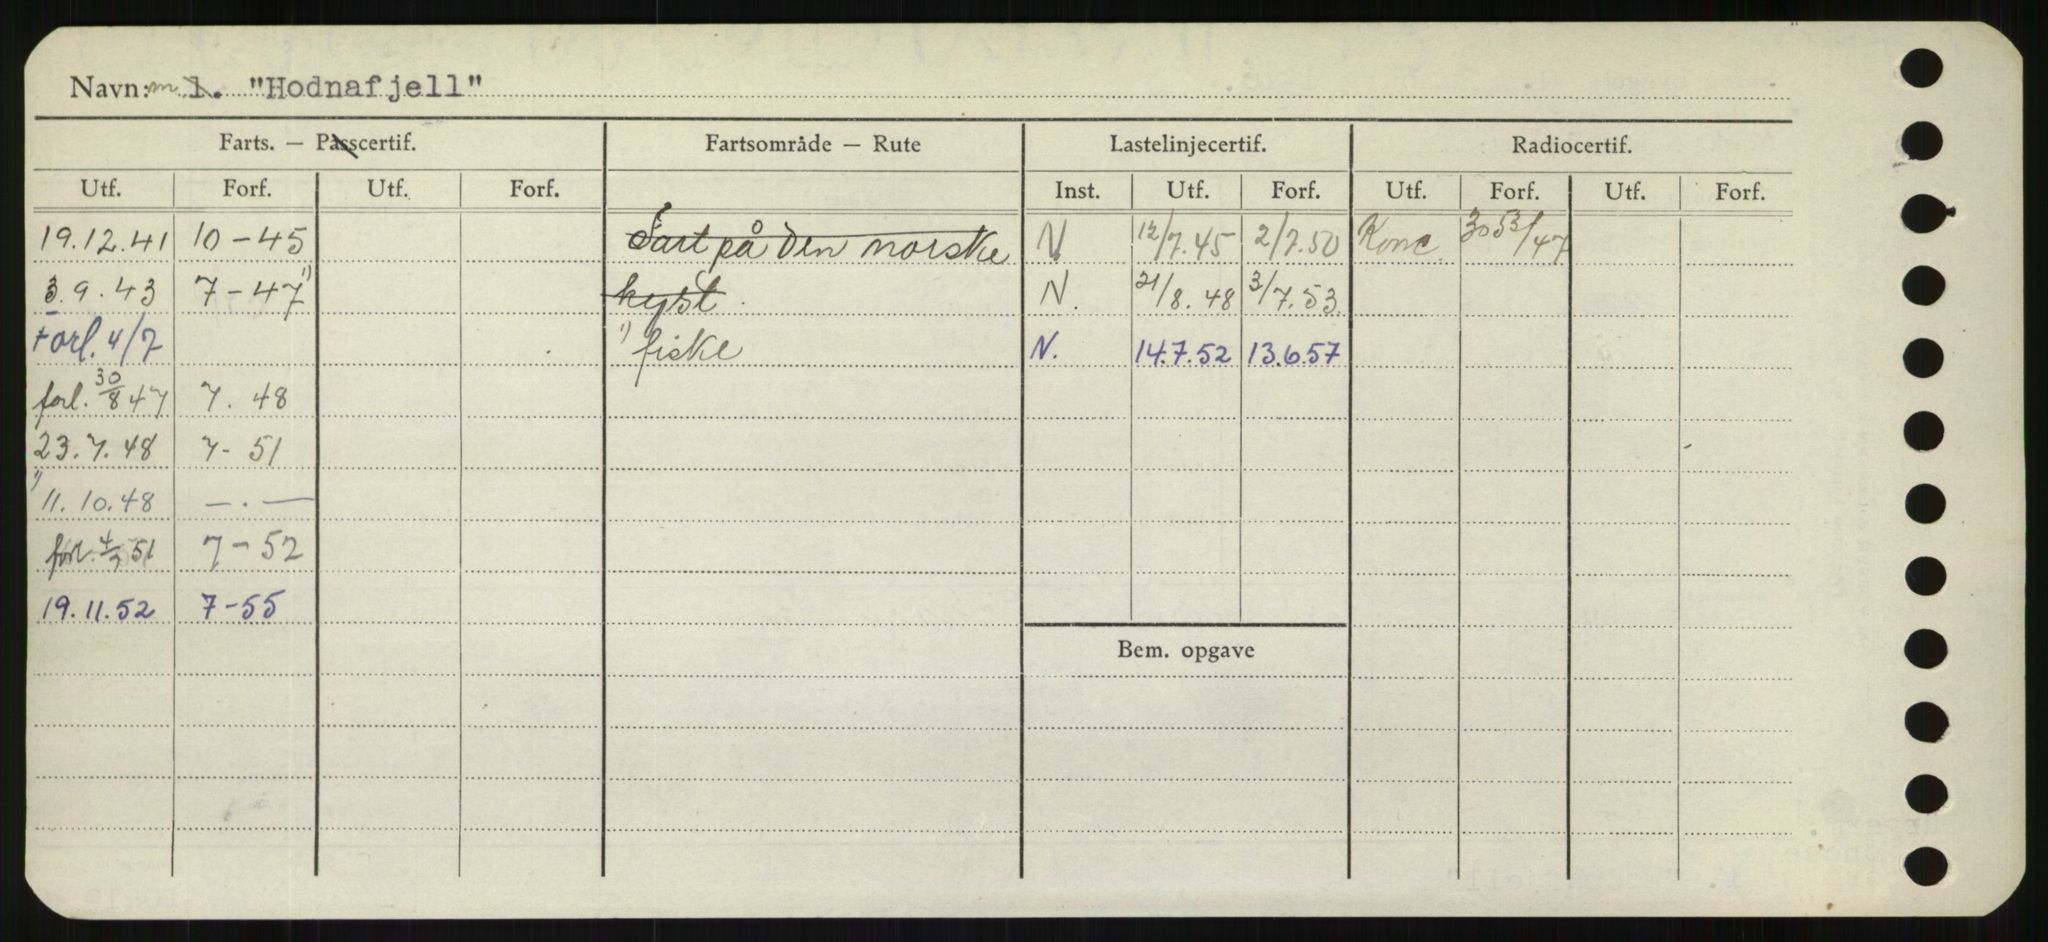 Navn: m l. "Hodnafjell"
Farts. — Passcertif. Fartsområde — Rute Lastelinjecertif. Radiocertif.
Utf. Forf. Utf. Forf. Inst. Utf. Forf. Utf. Forf. Utf. Forf.
19.12.41 10-45 Fart på den norske N 12/7.45 2/7.50 Konc. 30 53/47
3.9.43 7-47 1) kyst. N. 21/8.48 3/7.53
+ orl. 4/7 1) fiske N. 14.7.52 13.6.57
forl. 30/8 47 7. 48
23.7.48 7- 51
1) 11.10.48 —.—
forl. 4/7 51 7-52
19.11.52 7-55
Bem. opgave